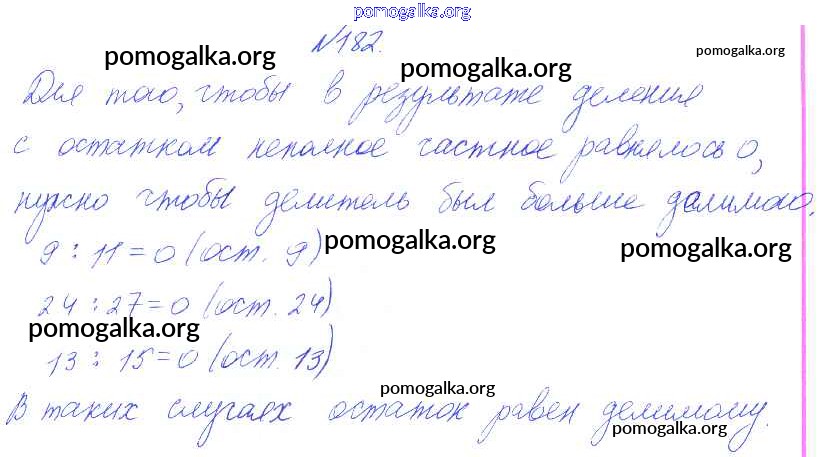 pomogalka.org
№182.
pomogalka.org
pomogalka.org
pomogalka.org
Для того, чтобы в результате деления
с остатком неполное частное равнялось 0,
нужно чтобы делитель был больше делимого.
9 : 11 = 0 (ост. 9)
pomogalka.org
pomogalka.org
24 : 27 = 0 (ост. 24)
pomogalka.org
13 : 15 = 0 (ост. 13)
pomogalka.org
В таких случаях остаток равен делимому.
pomogalka.org